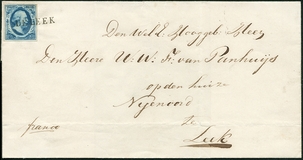 Den Wel Ed. Hooggeb. Heer
Den Heere W. W. Fr. van Panhuijs
op den huize
Nijenoord
te
Leek
franco